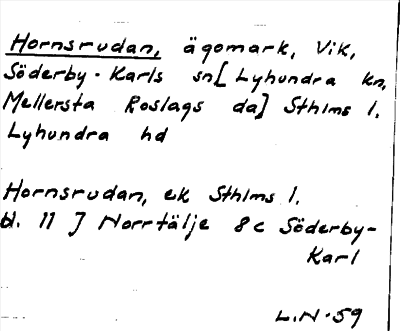 Hornsrudan, ägomark, Vik,
Söderby-Karls sn[Lyhundra kn,
Mellersta Roslags da] Sthlms l.
Lyhundra hd
Hornsrudan, ek Sthlms l.
bl. 11 J Norrtälje 8 c Söderby-
Karl
L.N-59